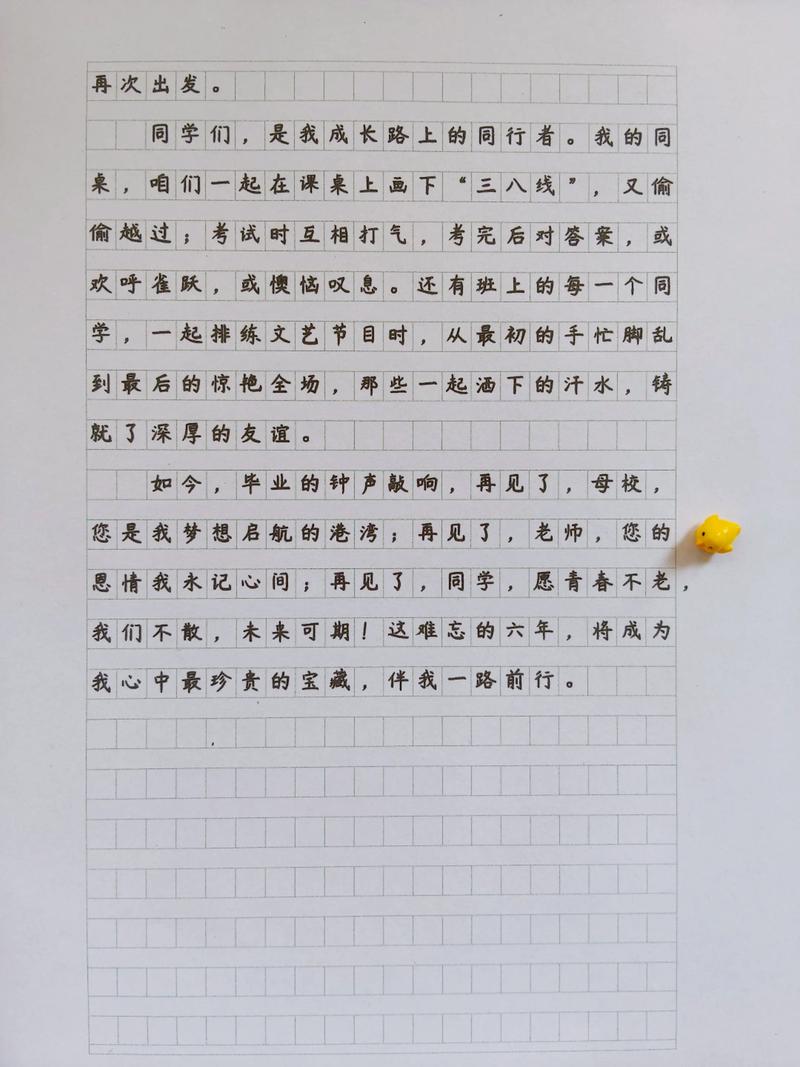 再次出发。
同学们，是我成长路上的同行者。我的同
桌，咱们一起在课桌上画下“三八线”，又偷
偷越过；考试时互相打气，考完后对答案，或
欢呼雀跃，或懊恼叹息。还有班上的每一个同
学，一起排练文艺节目时，从最初的手忙脚乱
到最后的惊艳全场，那些一起洒下的汗水，铸
就了深厚的友谊。
如今，毕业的钟声敲响，再见了，母校，
您是我梦想启航的港湾；再见了，老师，您的
恩情我永记心间；再见了，同学，愿青春不老，
我们不散，未来可期！这难忘的六年，将成为
我心中最珍贵的宝藏，伴我一路前行。